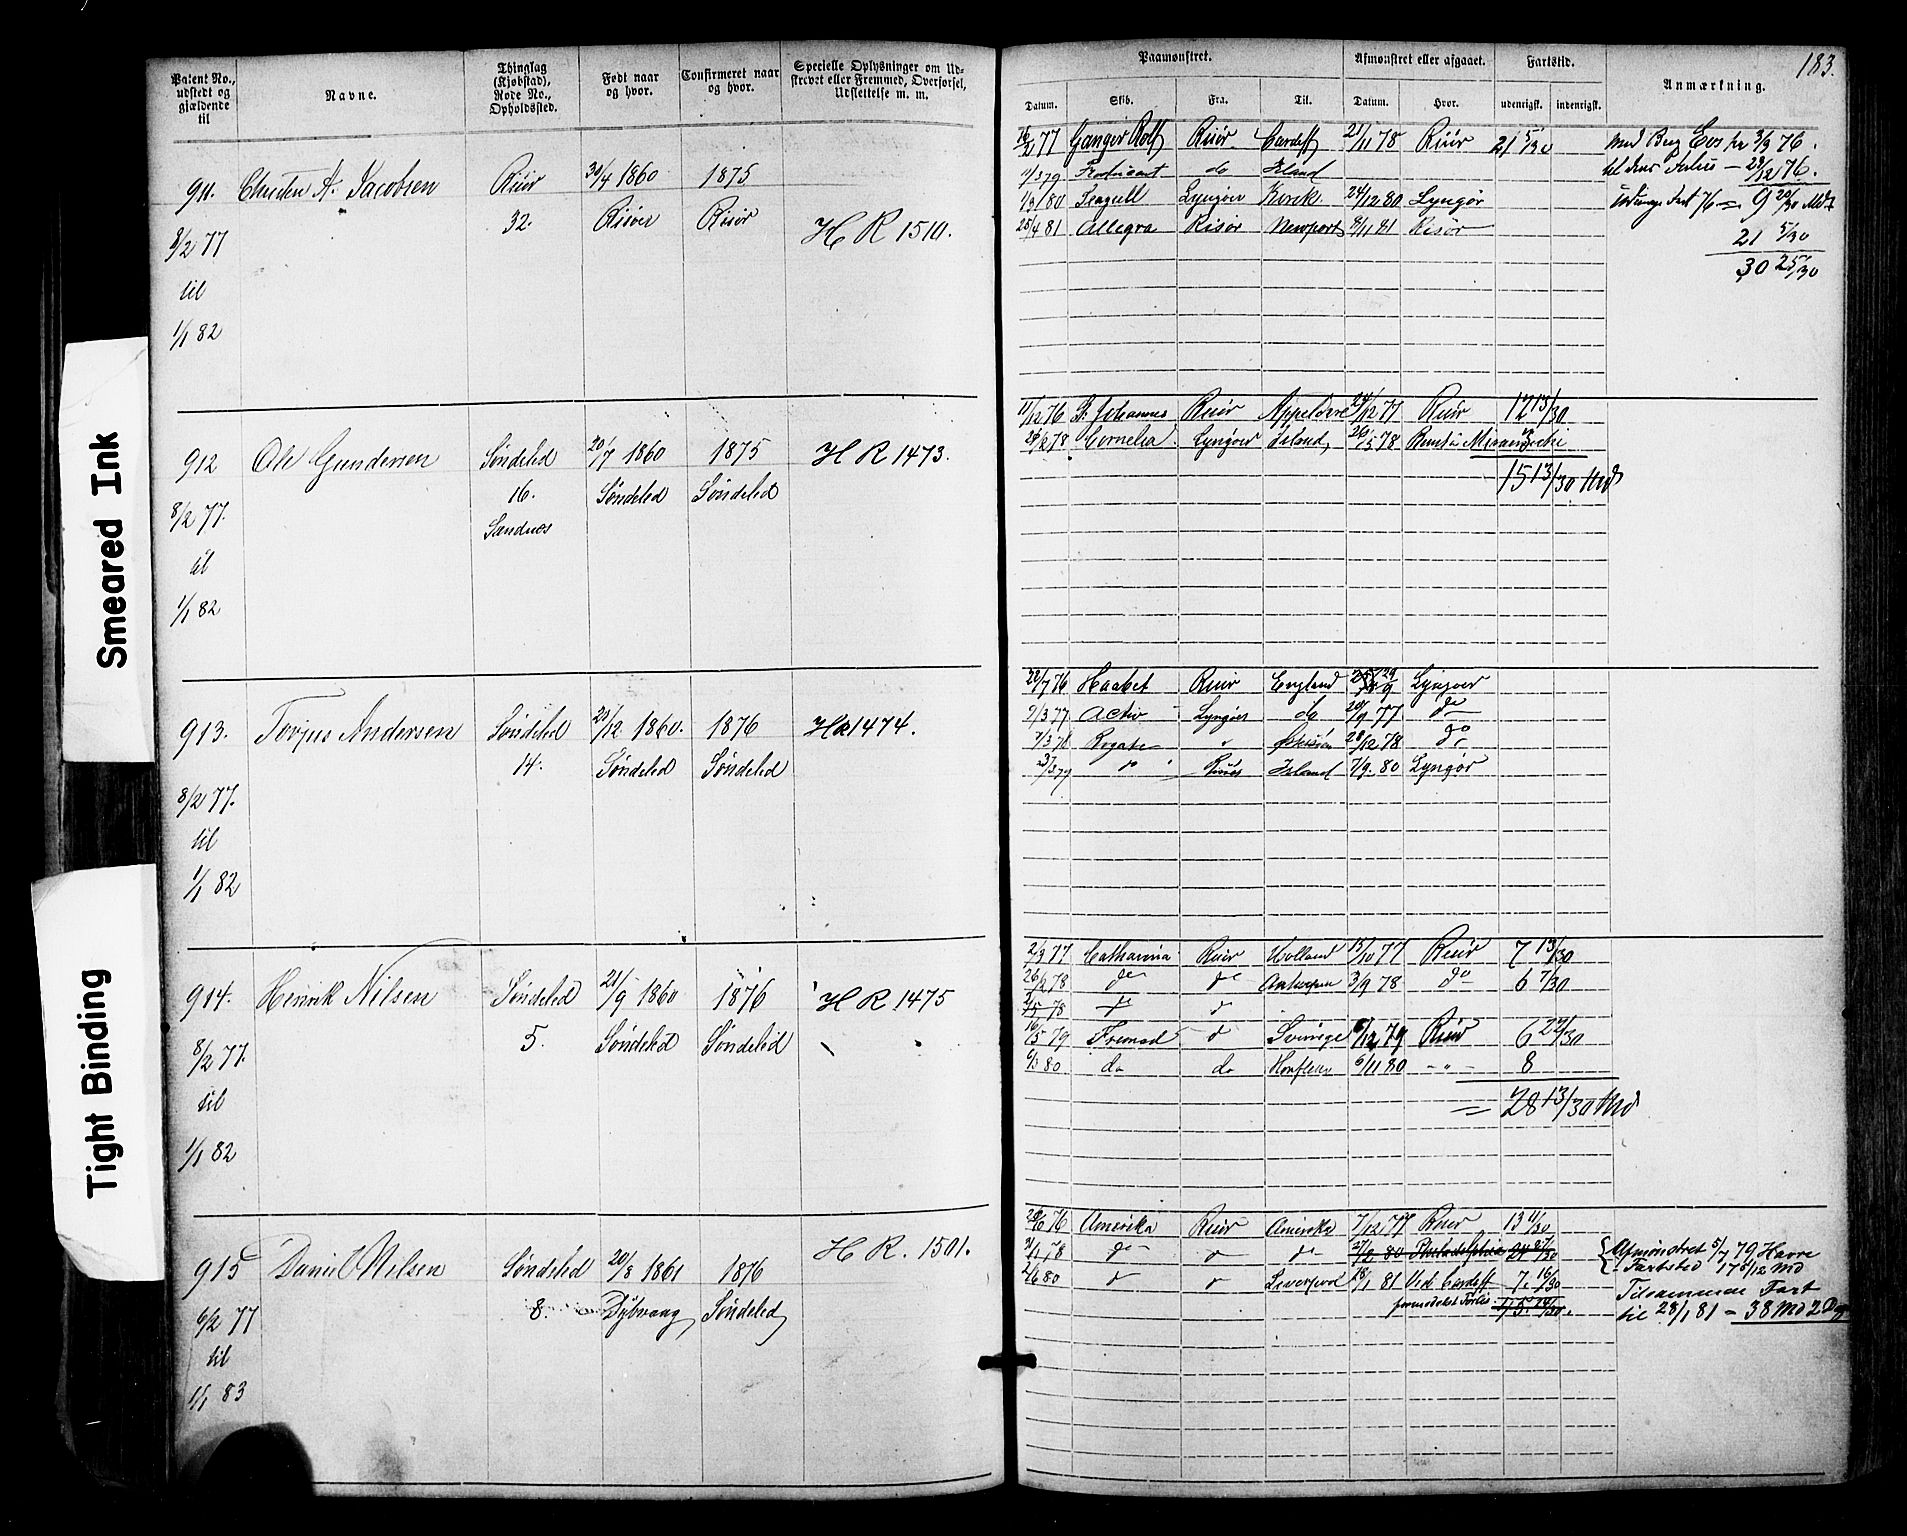 Smeared Ink
Tight Binding
183.
Patent No., udstedt og gjældende til
Navne.
Thinglag (Kjøbstad), Rode No., Opholdssted.
Født naar og hvor.
Confirmeret naar og hvor.
Specielle Oplysninger om Udskrevet eller Fremmed, Overførsel, Udslettelse m. m.
Paamønstret.
Afmønstret eller afgaaet.
Fartstid.
Anmærkning.
Datum.
Skib.
Fra.
Til.
Datum.
Hvor.
udenrigst.
indenrigst.
911. Christen A. Jacobsen Risør 30/4 1860 1875
32. Risøer Risør H R 1510.
8/2 77
til
1/1 82
77 Ganger Rolf Risør Cardiff 21/11 78 Risør 21 5/30
Med Brig Eos fra 3/3 76.
1/3 79 do Island
28/12 76.
1/3 80 Seagull Lyngøer 24/12 80 Lyngør
76 = 9 20/30 Md
25/4 81 Allegra Risør Newport 8/11 81 Risør
21 5/30
30 25/30
912 Ole Gundersen Søndeled 20/7 1860 1875 H R 1473.
16. Søndeled Søndeled
Sandnæs
8/2 77.
til
1/1 82
11/12 76 St. Johannes Risør 24/12 77 Risør 12 13/30
28/2 78 Cornelia Lyngøer Island 26/5 78
15 13/30 Md
913. Torjus Andersen Søndeled 21/12 1860. 1876 HR 1474.
14. Søndeled Søndeled
8/2 77.
til
1/1 82
22/7 76 Haabet Risør England 29/9 Lyngøer
7/3 77 Activ Lyngøer do 20/9 77 do
7/3 78 Rogate 28/12 78 do
23/3 79 do Risøer Island 7/9 80 Lyngør
914. Henrik Nilsen Søndeled 21/9 1860 1876 H R 1475
5. Søndeled Søndeled
8/2 77.
til
1/1 82
2/3 77 Catharina Risør Holland 15/10 77 Risør 7 13/30
26/2 78 do do Antwerpen 3/9 78 do 6 7/30
78 do do
16/5 79 Fremad do Sverige 12 79 Risør 6
6/3 80 do do Honfleur 6/11 80 - " - 8
= 28 13/30 Md
915 Daniel Nilsen Søndeled 20/8 1861 1876 H R. 1501.
8. Dybvaag Søndeled
6/2 77
til
1/1 83
76 Amerika Risør Amerika 7/12 77 Risør 13 11/30
78 do do do 80 Philadelphia
Afmønstret 5/7 79 Havre
Fartstid 17 Md
2/6 80 do do Liverpool 28/1 81 Ved Cardiff 7 16/30
formedelst Forlis
Tilsammende Fart
til 28/1 81 = 38 Md 2 Dg